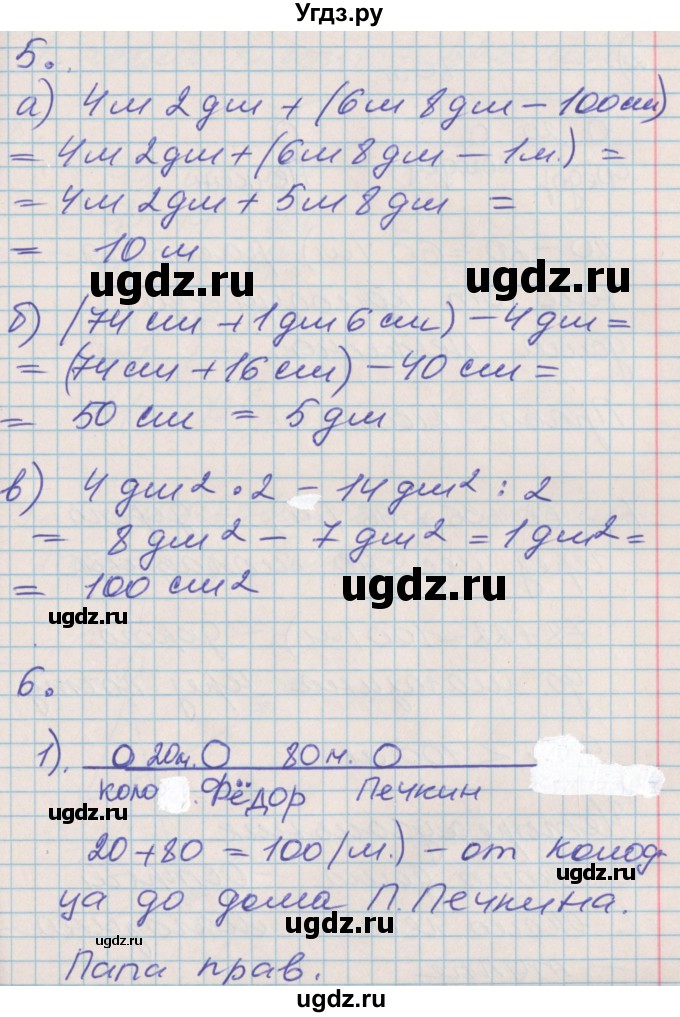 Угдз.ру
5.
а) 4м 2дм + (6м 8дм – 100см)
= 4м 2дм + (6м 8дм – 1м.) =
= 4м 2дм + 5м 8дм =
= 10 м
ugdz.ru ugdz.ru
б) (74 см + 1дм 6 см) – 4 дм =
= (74 см + 16 см) – 40 см =
= 50 см = 5 дм
ugdz.ru
в) 4 дм² · 2 – 14 дм² : 2
= 8 дм² – 7 дм² = 1 дм² =
= 100 см²
ugdz.ru
ugdz.ru
6.
1). 20м. 80м.
коло . Фёдор Печкин
20 + 80 = 100 (м.) – от колод-
ца до дома П. Печкина.
ugdz.ru
ugdz.ru
Папа прав.
ugdz.ru